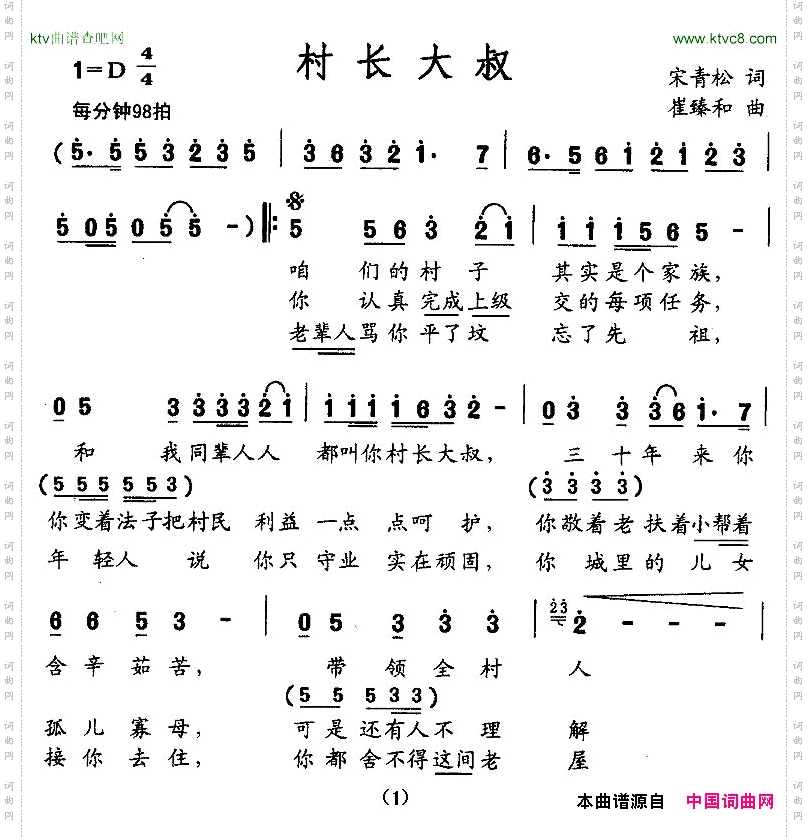 ktv曲谱查吧网
www.ktvc8.com
1=D 4/4
村长大叔
宋青松 词
每分钟98拍
崔臻和 曲
(5· 5 5 3 2 2 3 5 | 3 6 3 2 1· 7 | 6· 5 6 1 2 1 2 3
5 0 5 0 5 5 -) 5 5 6 3 2 1 | 1 1 1 5 6 5 -
咱 们的村 子 其实是个家族,
你 认真完成上级 交的每项任务,
老辈人骂你平了坟 忘了先 祖,
0 5 3 3 3 3 2 1 | 1 1 1 1 6 3 2 - | 0 3 3 3 6 1· 7
和 我同辈人人 都叫你村长大叔, 三十年来你
(5 5 5 5 5 3) (3 3 3 3 3)
你变着法子把村民 利益一点 点呵护, 你敬着老扶着小帮着
年轻人 说 你只守业 实在顽固, 你 城里的儿女
6 6 5 3 - | 0 5 3 3 3 | 2 3 2 - - -
含辛茹苦, 带领全村 人
(5 5 5 3 3)
孤儿寡母, 可是还有人不理 解
接你去住, 你都舍不得这间老 屋
(1)
本曲谱源自 中国词曲网
词曲网